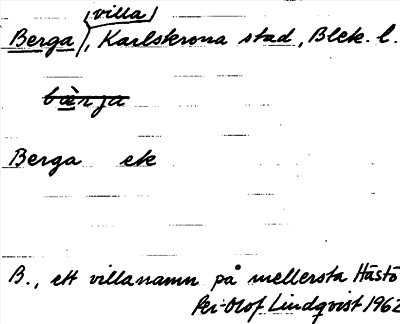 villa
Berga, Karlskrona stad, Blek. l.
bärja
Berga ek
B., ett villanamn på mellersta Hästö
Per-Olof Lindqvist 1962